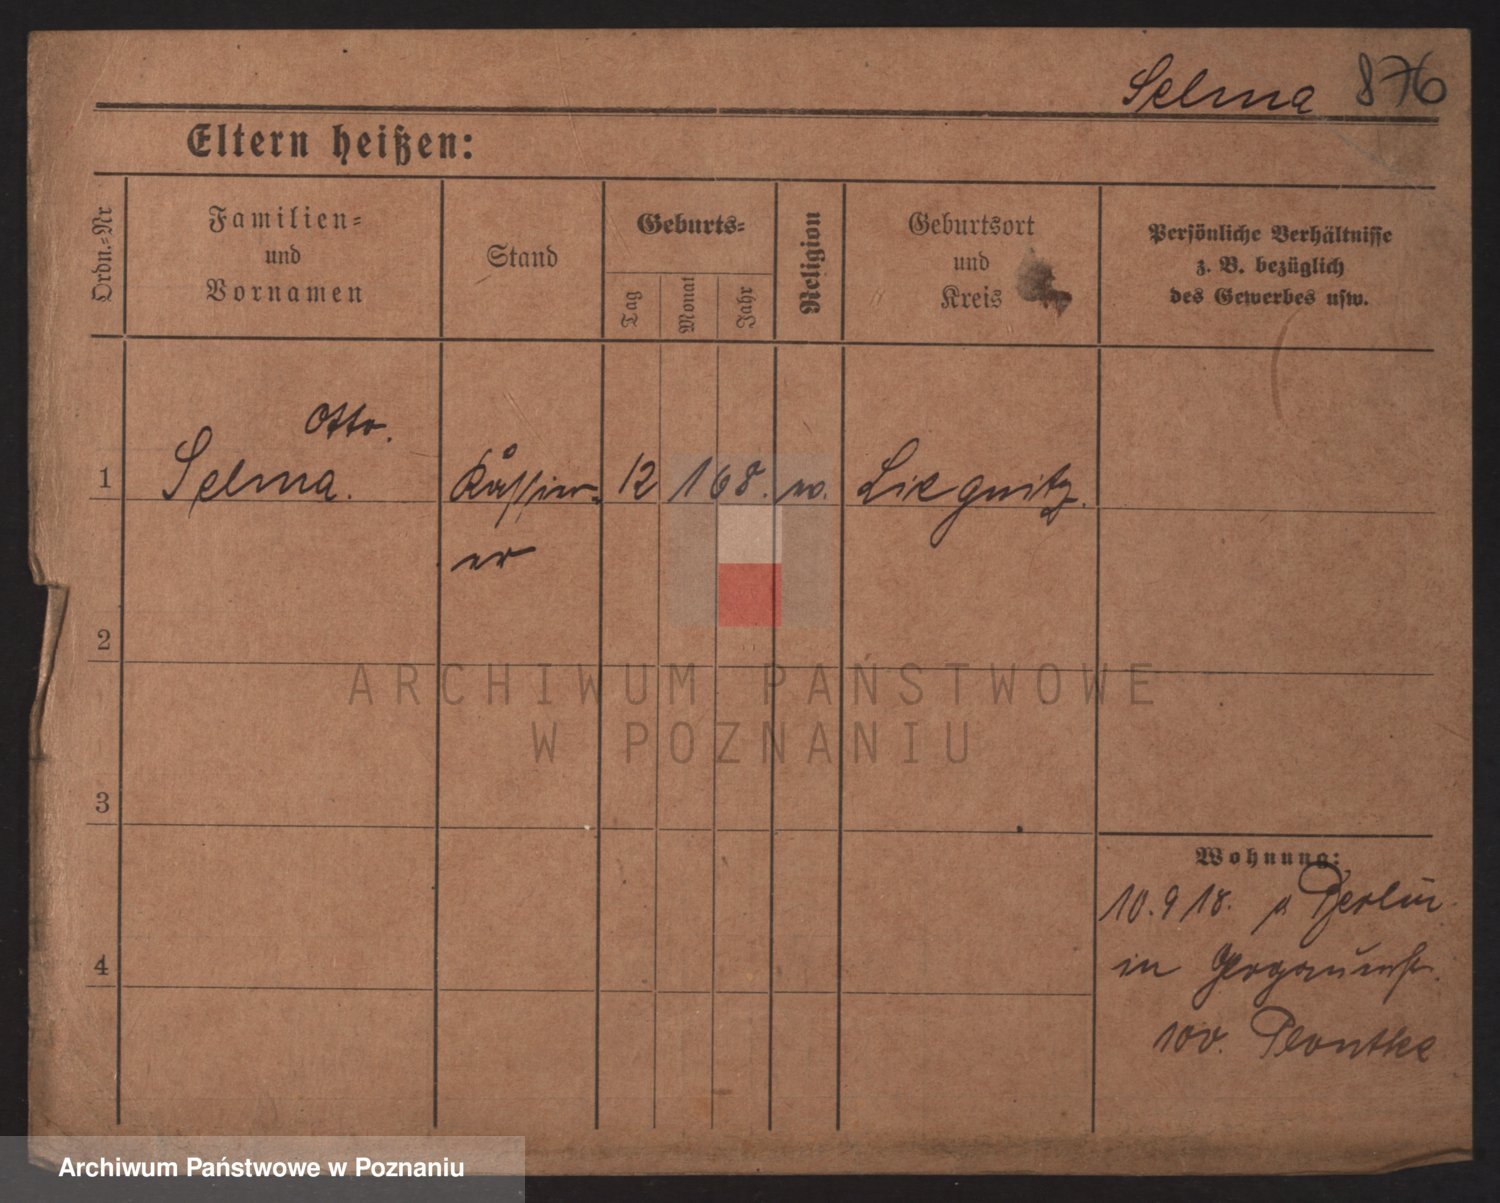 Selma 876
Eltern heißen:
Ordn.=Nr
Familien=
und
Vornamen
Stand
Geburts=
Tag
Monat
Jahr
Religion
Geburtsort
und
Kreis
Persönliche Verhältnisse
z. B. bezüglich
des Gewerbes usw.
Otto.
1 Selma. 12 1 68. Liegnitz.
er
2
3
4
Wohnung:
10. 9 18. Berlin
in
100.
ARCHIWUM PAŃSTWOWE
W POZNANIU
Archiwum Państwowe w Poznaniu